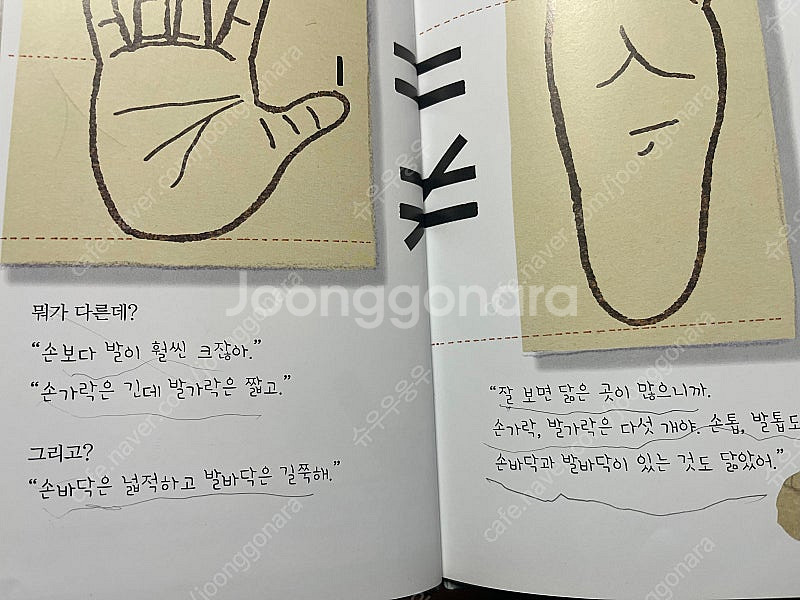 뭐가 다른데?
“손보다 발이 훨씬 크잖아.”
“손가락은 긴데 발가락은 짧고.”
그리고?
“손바닥은 넓적하고 발바닥은 길쭉해.”
“잘 보면 닮은 곳이 많으니까.
손가락, 발가락은 다섯 개야. 손톱, 발톱도
손바닥과 발바닥이 있는 것도 닮았어.”
Joonggonara
cafe.naver.com/joonggonara
슈우우웅우